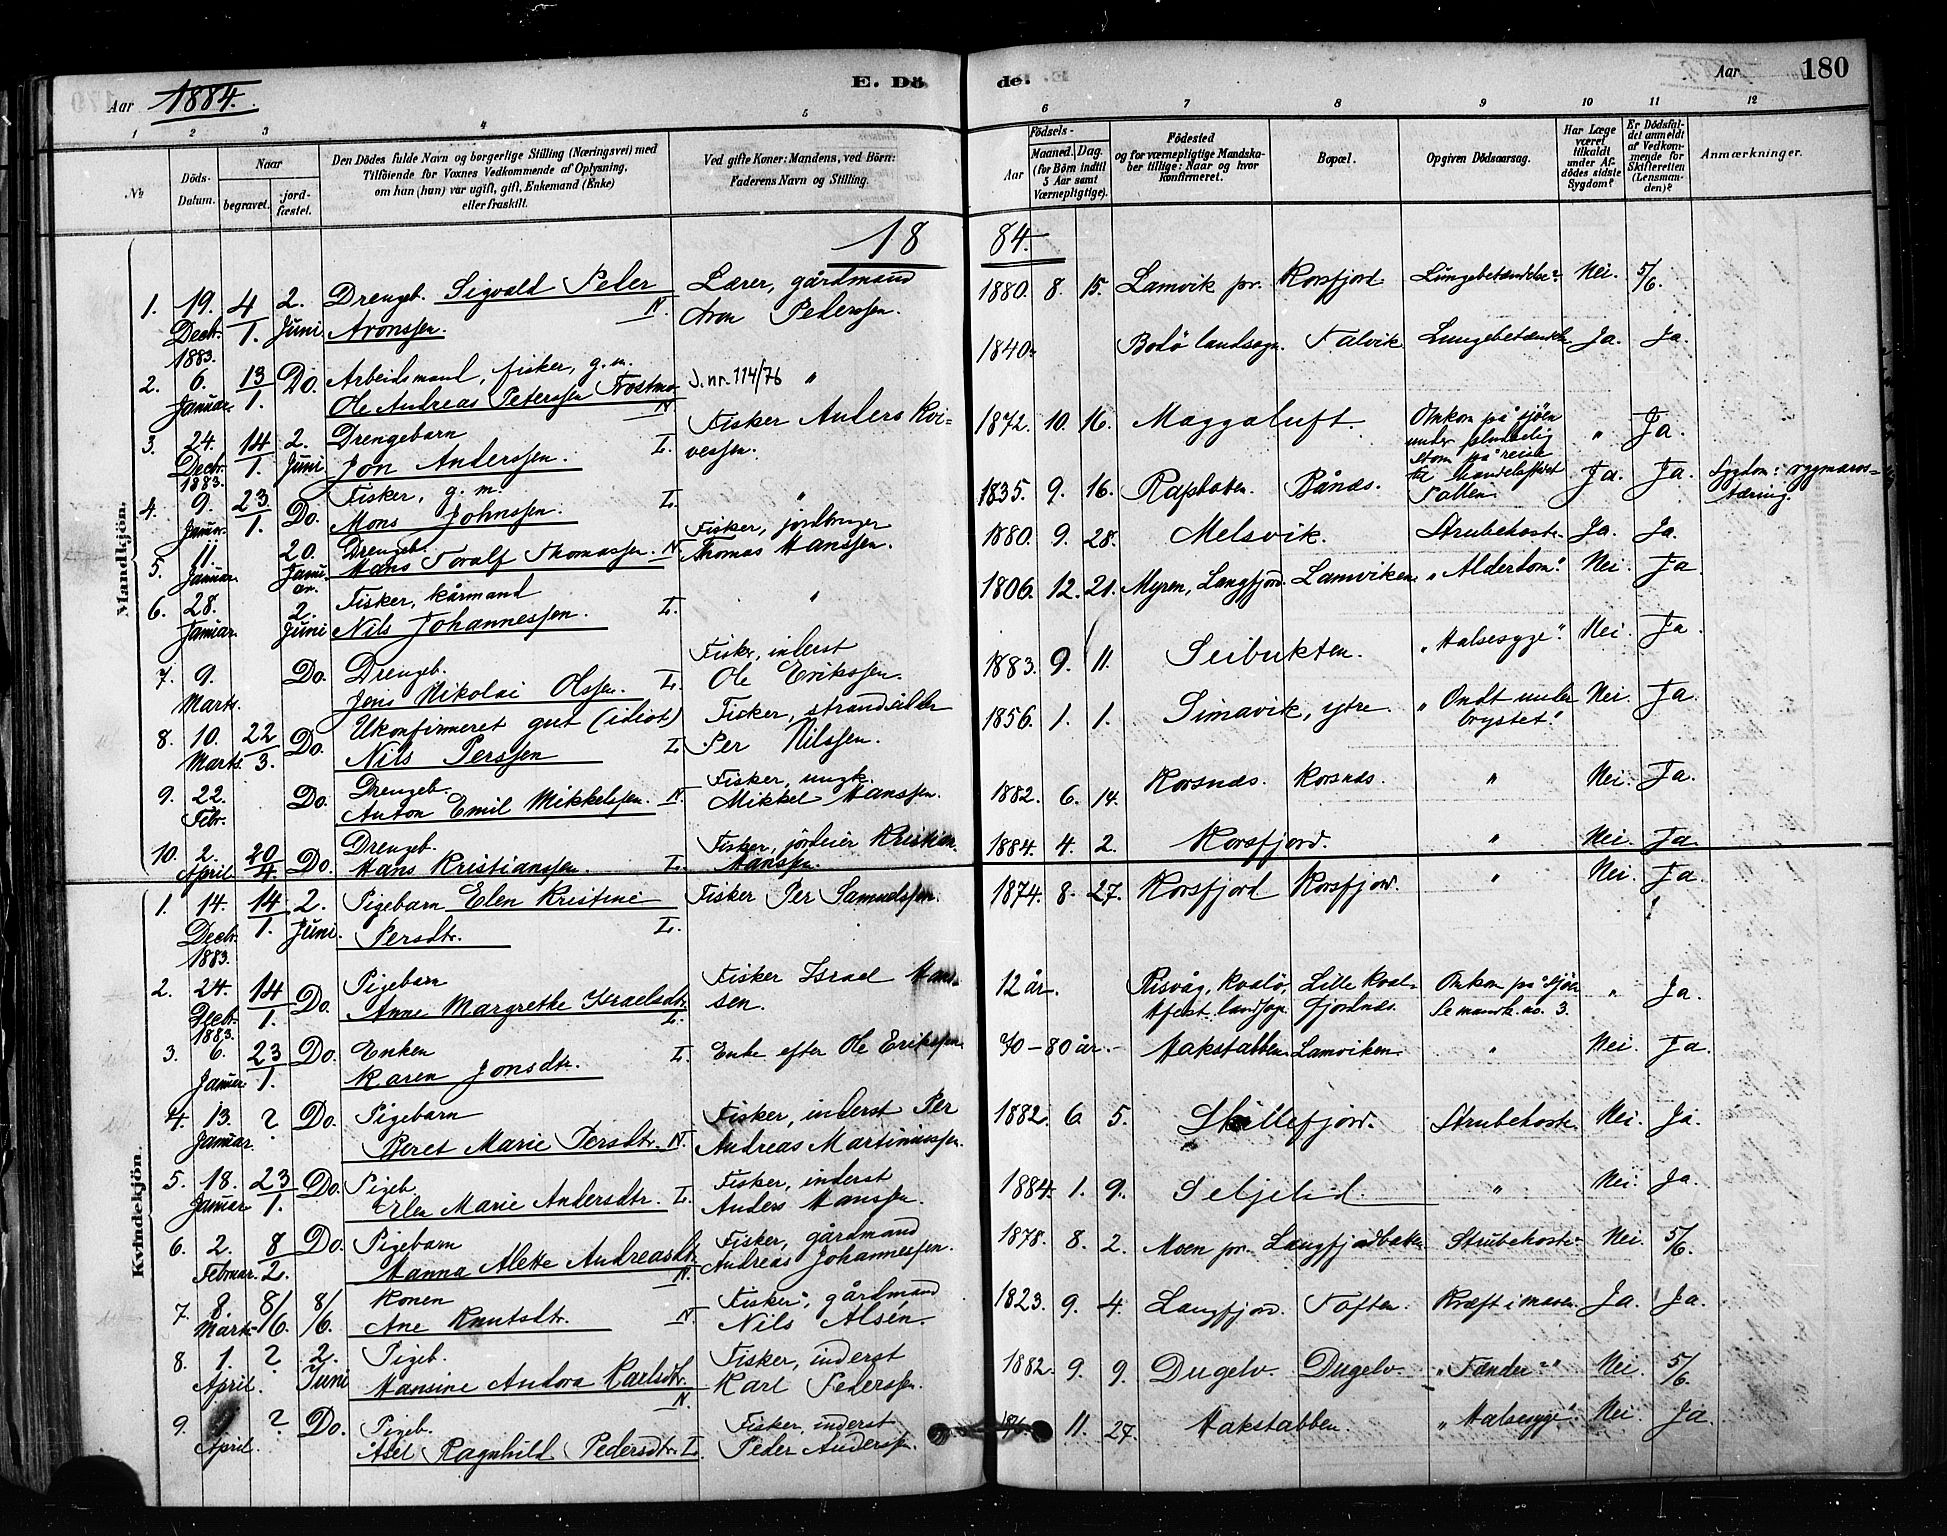 Aar 1884.
E. Døde.
Aar 180
1 2 3 4 5 6 7 8 9 10 11 12
№
Døds-Datum.
Naar begravet. jordfæstet.
Den Dødes fulde Navn og borgerlige Stilling (Næringsvei) med
Tilføiende for Voxnes Vedkommende af Oplysning,
om han (hun) var ugift, gift, Enkemand (Enke)
eller fraskilt.
Ved gifte Koner: Mandens, ved Børn:
Faderens Navn og Stilling.
Fødsels-
Aar Maaned. Dag.
(for Børn indtil 5 Aar samt Værnepligtige).
Fødested
og for værnepligtige Mandskaber tillige: Naar og hvor konfirmeret.
Bopæl.
Opgiven Dødsaarsag.
Har Læge været tilkaldt under Afdødes sidste Sygdom?
Er Dødsfaldet anmeldt af Vedkommende for Skifteretten (Lensmanden)?
Anmærkninger.
1884.
Mandkjøn.
1. 19. Decbr. 1883. 4/1. 2. Juni Drengeb. Sigvald Peder Aronssen N. Lærer, gårdmand Aron Pederssen. 1880. 8. 15. Lamvik pr. Korsfjord Lungebetændelse. Nei. 5/6.
2. 6. Januar. 13/1. Do. Arbeidsmand, fisker, g. m. Ole Andreas Peterssen Trostmo N. J. nr. 114/76 " 1840. Bodø landsogn Talvik Lungebetændelse Ja. Ja.
3. 24. Decbr. 1883. 14/1. 2. Juni Drengebarn Jon Anderssen. L. Fisker Anders Kvivessen. 1872. 10. 16. Maggaluft. Omkom på sjøen under pludselig storm på reise til handelsstedet Tallen. " Ja.
4. 9. Januar. 23/1. Do. Fisker, g. m. Mons Johnssen. L. " 1835. 9. 16. Rafsbotn. Bånæs. Ja. Ja. Sygdom: rygmarvstæring.
5. 11. Januar. 20. Januar. Drengeb. Hans Toralf Thomassen. N. Fisker, jordbruger Thomas Hanssen. 1880. 9. 28. Melsvik. Strubehoste. Ja. Ja.
6. 28. Januar. 2. Juni Fisker, kårmand Nils Johannessen. L. " 1806. 12. 21. Myren, Langfjord. Lamviken. "Alderdom". Nei. Ja.
7. 9. Marts. Do. Drengeb. Jens Nikolai Olssen. L. Fisker, inderst Ole Erikssen. 1883. 9. 11. Seibukten. "Halsesyge". Nei. Ja.
8. 10. Marts. 22/3. Do. Ukonfirmeret gut (idiot) Nils Perssen L. Fisker, strandsidder Per Nilssen. 1856. 1. 1. Simavik, ytre. "Ondt under brystet". Nei. Ja.
9. 22. Febr. Do. Drengeb. Anton Emil Mikkelssen. N. Fisker, ungk. Mikkel Hanssen. 1882. 6. 14. Korsnæs. Korsnæs. " Nei. Ja.
10. 2. April 20/4 Do. Drengeb. Hans Kristianssen. L. Fisker, jordeier Kristian Hanssen. 1884. 4. 2. Korsfjord. " Nei. Ja.
Kvindekjøn.
1. 14. Decbr. 1883. 14/1. 2. Juni. Pigebarn Elen Kristine Persdtr. L. Fisker Per Samuelssen. 1874. 8. 27. Korsfjord Korsfjord. " Nei. Ja.
2. 24. Decbr. 1883. 14/1. Do. Pigebarn Anne Margrethe Israelsdtr. L. Fisker Israel Hanssen. 12 år. Risvåg, Kvalø, Hfest. landsogn Lille Kvalfjordnæs. Omkom på sjøen Se mandk. no. 3. " Ja.
3. 6. Januar 23/1. Do. Enken Karen Jonsdtr. L. Enke efter Ole Erikssen. 70-80 år. Hakstabben Lamviken. " Nei. Ja.
4. 13. Januar. ? Do. Pigebarn Beret Marie Persdtr. N. Fisker, inderst Per Andreas Martiniussen. 1882. 6. 5. Skillefjord. Strubehoste. Nei. Ja.
5. 18. Januar 23/1. Do. Pigeb. Elen Marie Andersdtr. L. Fisker, inderst Anders Hanssen. 1884. 1. 9. " Nei. Ja.
6. 2. Februar. 8/2. Do. Pigebarn Hanna Alette Andreasdtr. N. Fisker, gårdmand Andreas Johannessen. 1878. 8. 2. Moen pr. Langfjordbotn Strubehoste. Nei. 5/6.
7. 8. Marts. 8/6. 8/6. Konen Ane Knutsdtr. N. Fisker, gårdmand Nils Alsén. 1823. 9. 4. Langfjord. Toften. Kræft i maven. Ja. Ja.
8. 1. April. ? 2. Juni Pigeb. Hansine Andora Karlsdtr. N. Fisker, inderst Karl Pederssen. 1882. 9. 9. Dugelv. Dugelv. "Tænder" Nei. 5/6.
9. April. ? Do. Pigeb. Ragnhild Pedersdtr. L. Fisker, inderst Peder Anderssen. 11. 27. Hakstabben. "Halsesyge". Nei. Ja.